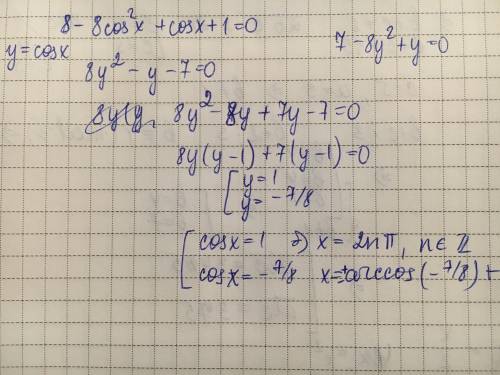 8 - 8cos²x + cosx + 1 = 0
y = cosx
7 - 8y² + y = 0
8y² - y - 7 = 0
8y² - 8y + 7y - 7 = 0
8y(y - 1) + 7(y - 1) = 0
[ y = 1
y = -7/8
[ cosx = 1 ⇒ x = 2πn, n ∈ ℤ
cosx = -7/8 x = ± arccos(-7/8) +